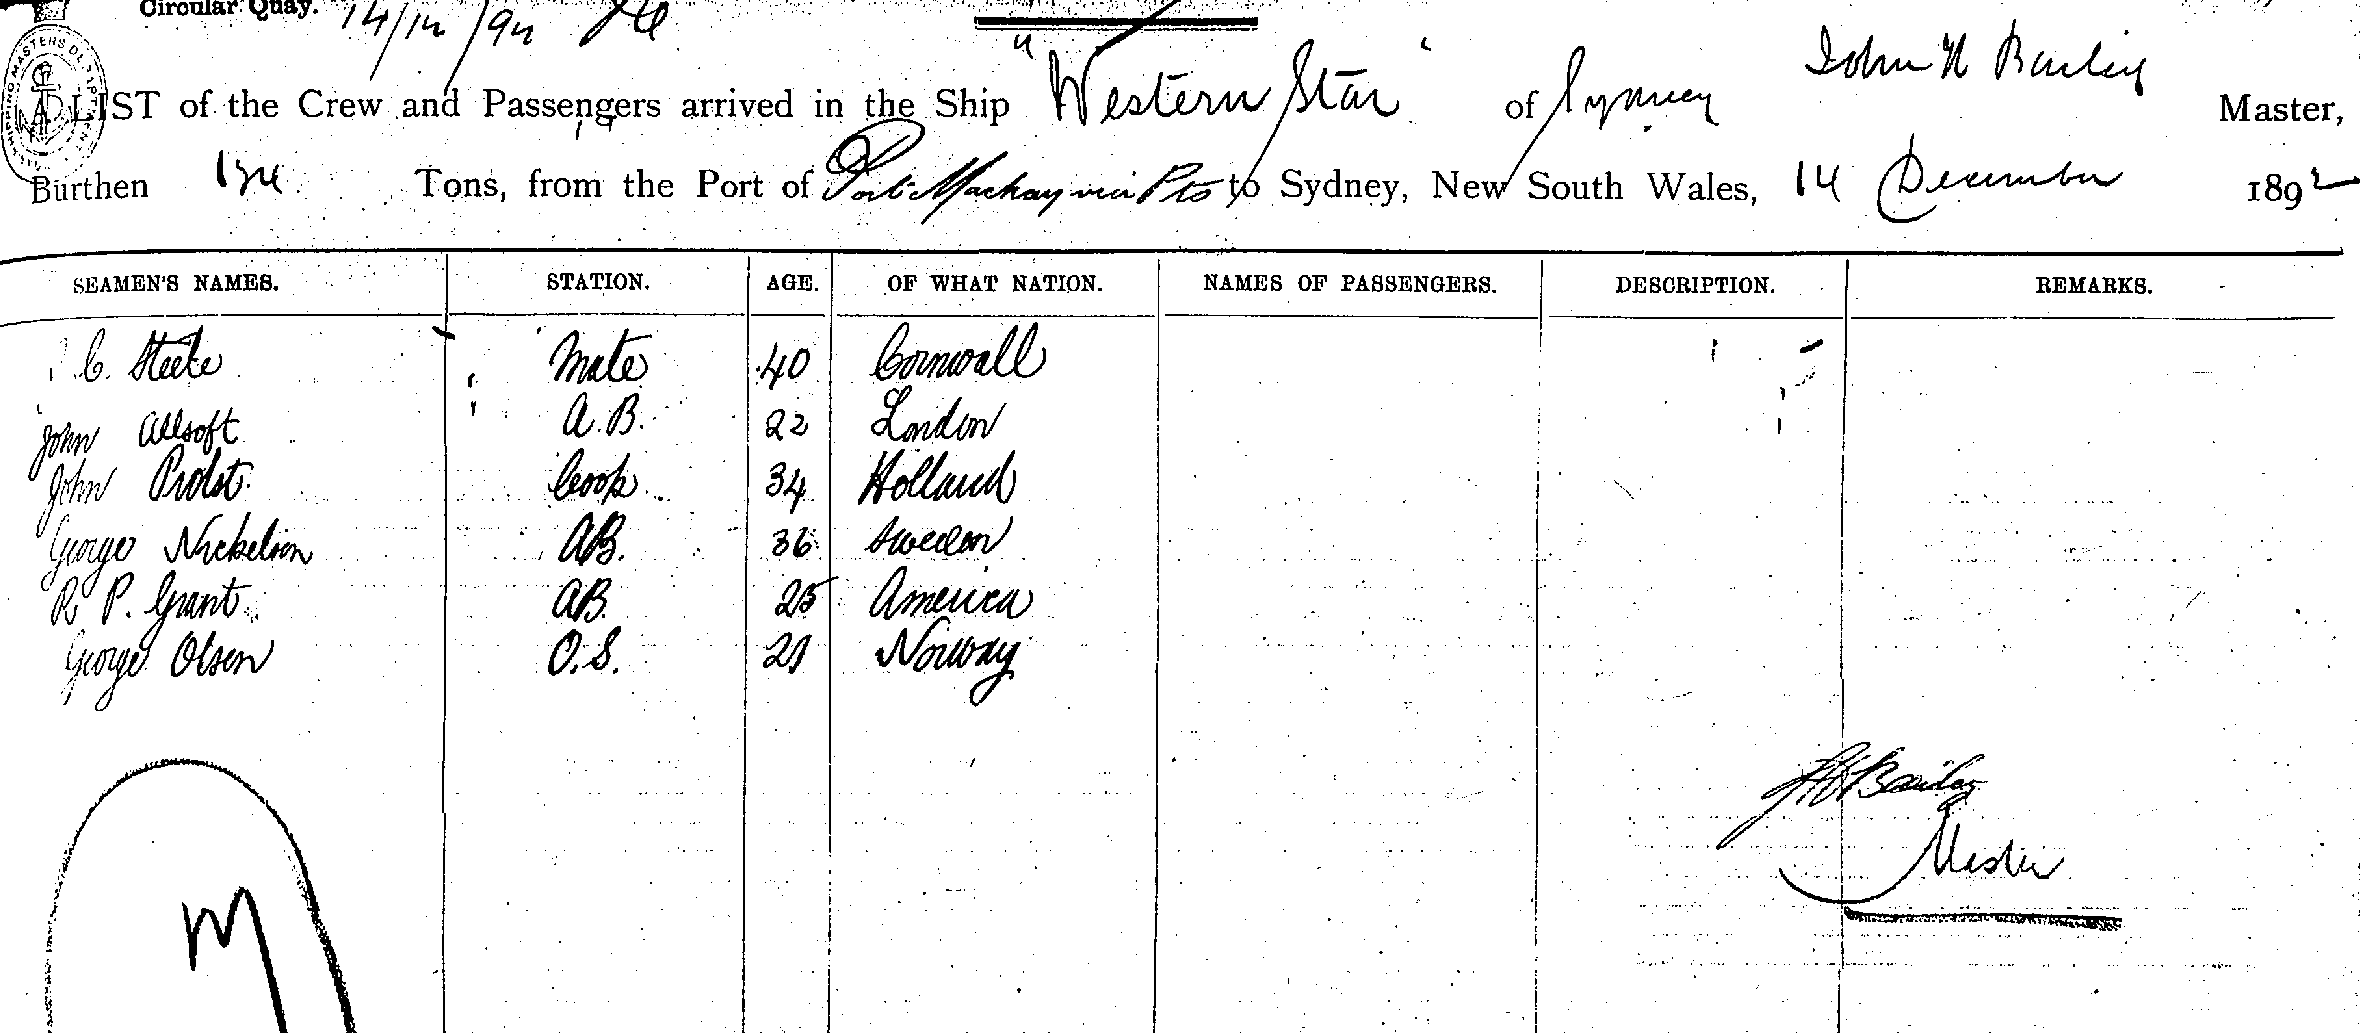 Circular Quay. 14/12/92
John H Bailey
LIST of the Crew and Passengers arrived in the Ship "Western Star" of Sydney Master,
Burthen Tons, from the Port of Port Mackay via to Sydney, New South Wales, 14 December 1892
SEAMEN'S NAMES. STATION. AGE. OF WHAT NATION. NAMES OF PASSENGERS. DESCRIPTION. REMARKS.
C. Steele Mate 40 Cornwall
John Allsoft A.B. 22 London
John Probst Cook 34 Holland
George Nickelson AB. 36 Sweden
R P. Grant AB. 25 America
George Olsen O.S. 21 Norway
JH Bailey
Master
M